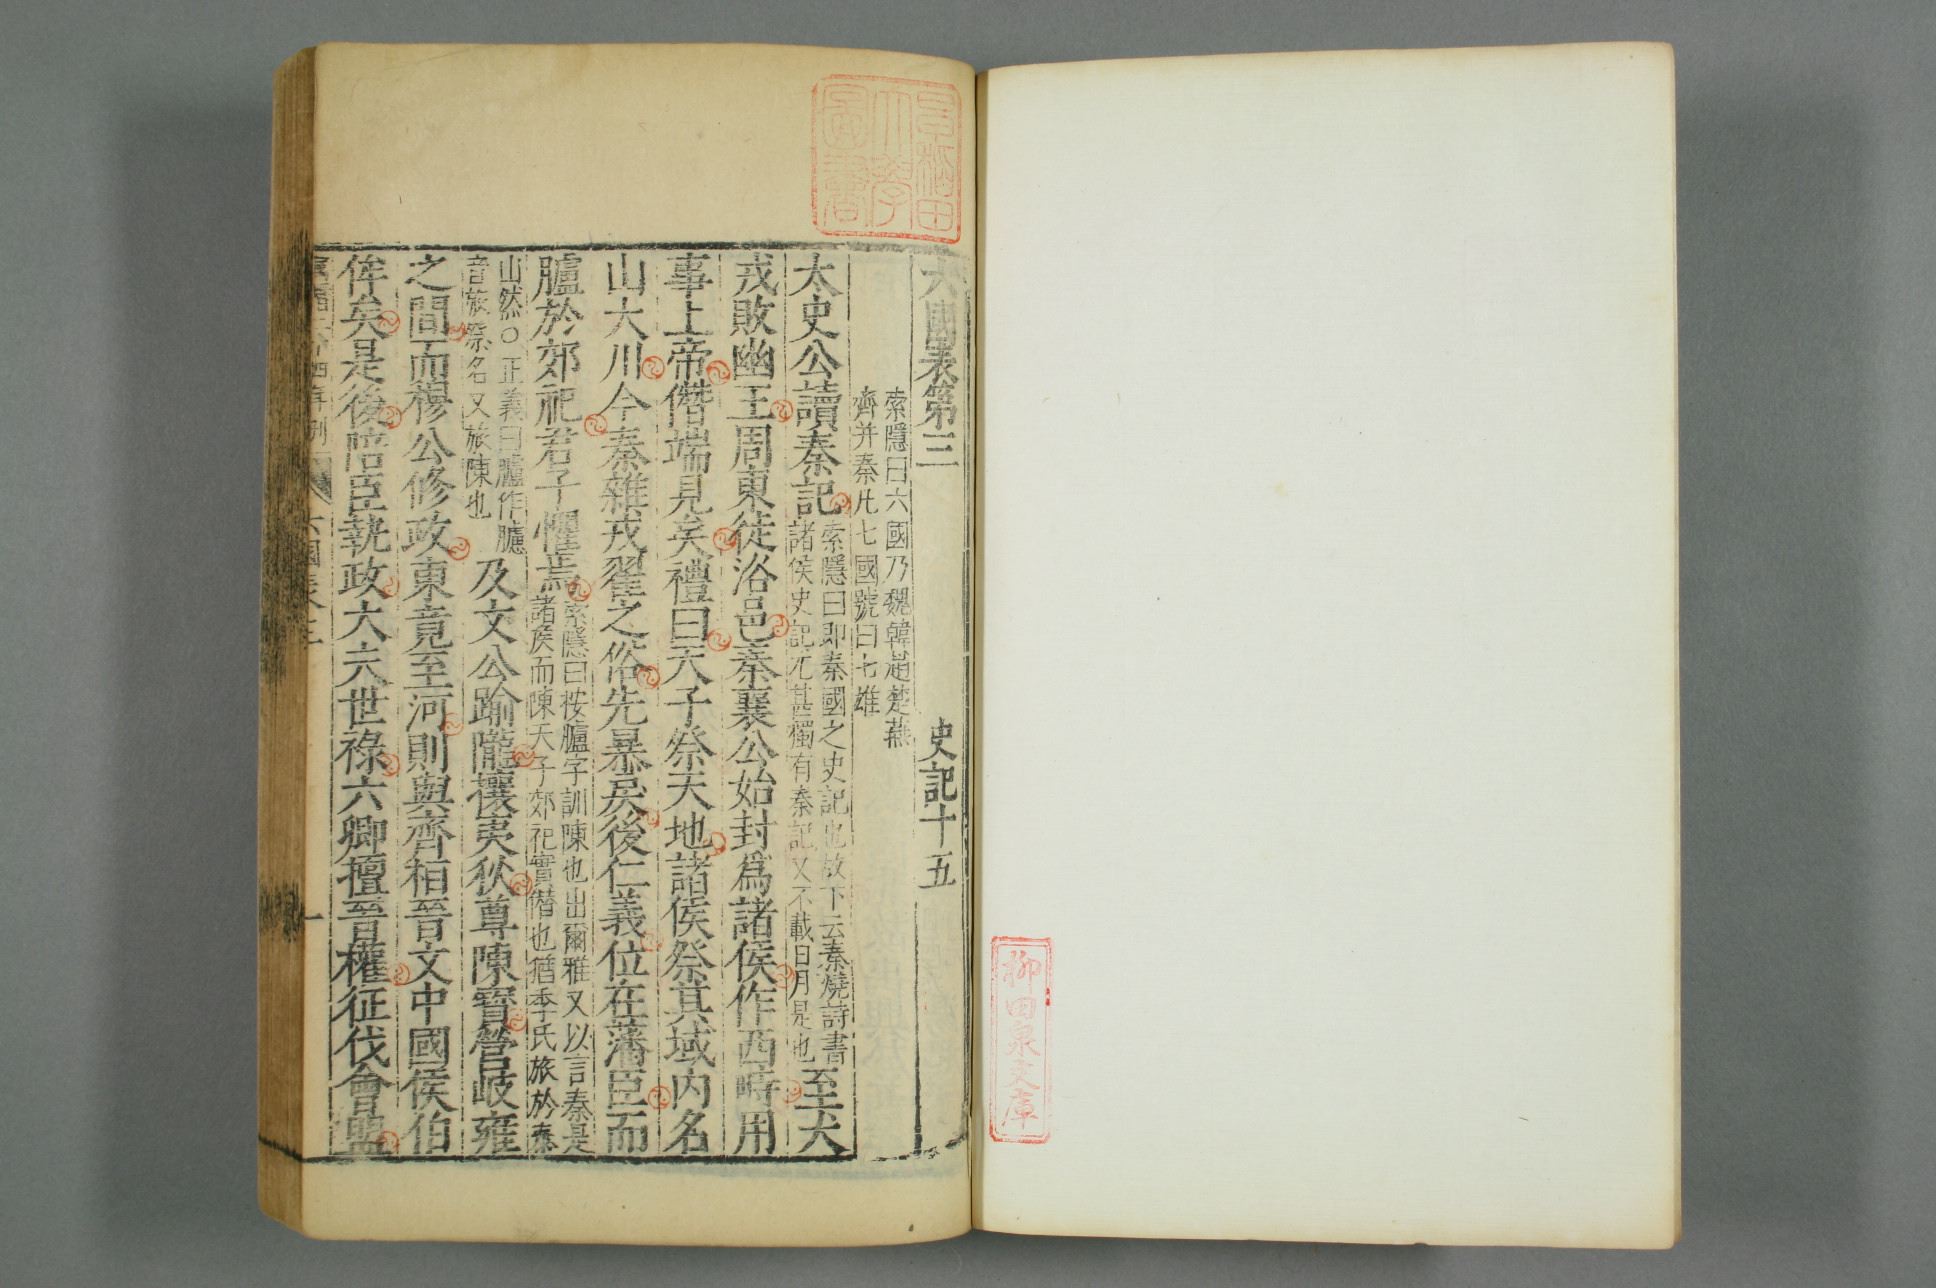 柳田泉文庫
早稲田大學圖書
六國表第三 史記十五
索隱曰六國乃魏韓趙楚燕
齊并秦凡七國號曰七雄
太史公讀秦記
索隱曰即秦國之史記也故下云秦燒詩書
諸侯史記尤甚獨有秦記又不載日月是也
至犬
戎敗幽王周東徙洛邑秦襄公始封爲諸侯作西畤用
事上帝僭端見矣禮曰天子祭天地諸侯祭其域内名
山大川今秦雜戎翟之俗先暴戾後仁義位在藩臣而
臚於郊祀君子懼焉
索隱曰按臚字訓陳也出爾雅又以言秦是
諸侯而陳天子郊祀實僭也猶季氏旅於泰
山然○正義曰臚作臚
音旅祭名又旅陳也
及文公踰隴攘夷狄尊陳寶營岐雍
之間而穆公修政東竟至河則與齊桓晉文中國侯伯
侔矣是後陪臣執政大夫世祿六卿擅晉權征伐會盟
六國表 一